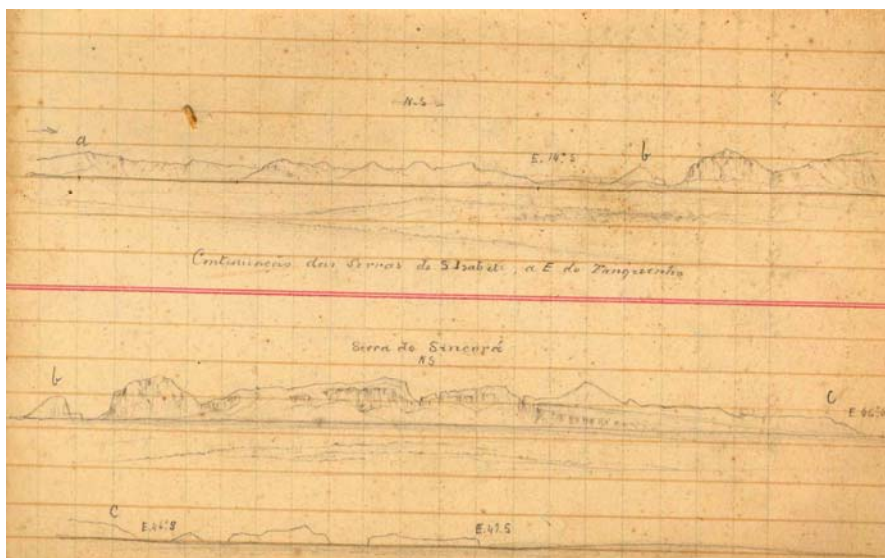 N-S
a
E. 14° S
b
Continuação das Serras de S. Izabel, a E do Tanquinho
Serra do Sincorá
NS
b
C
C
E. 42 S